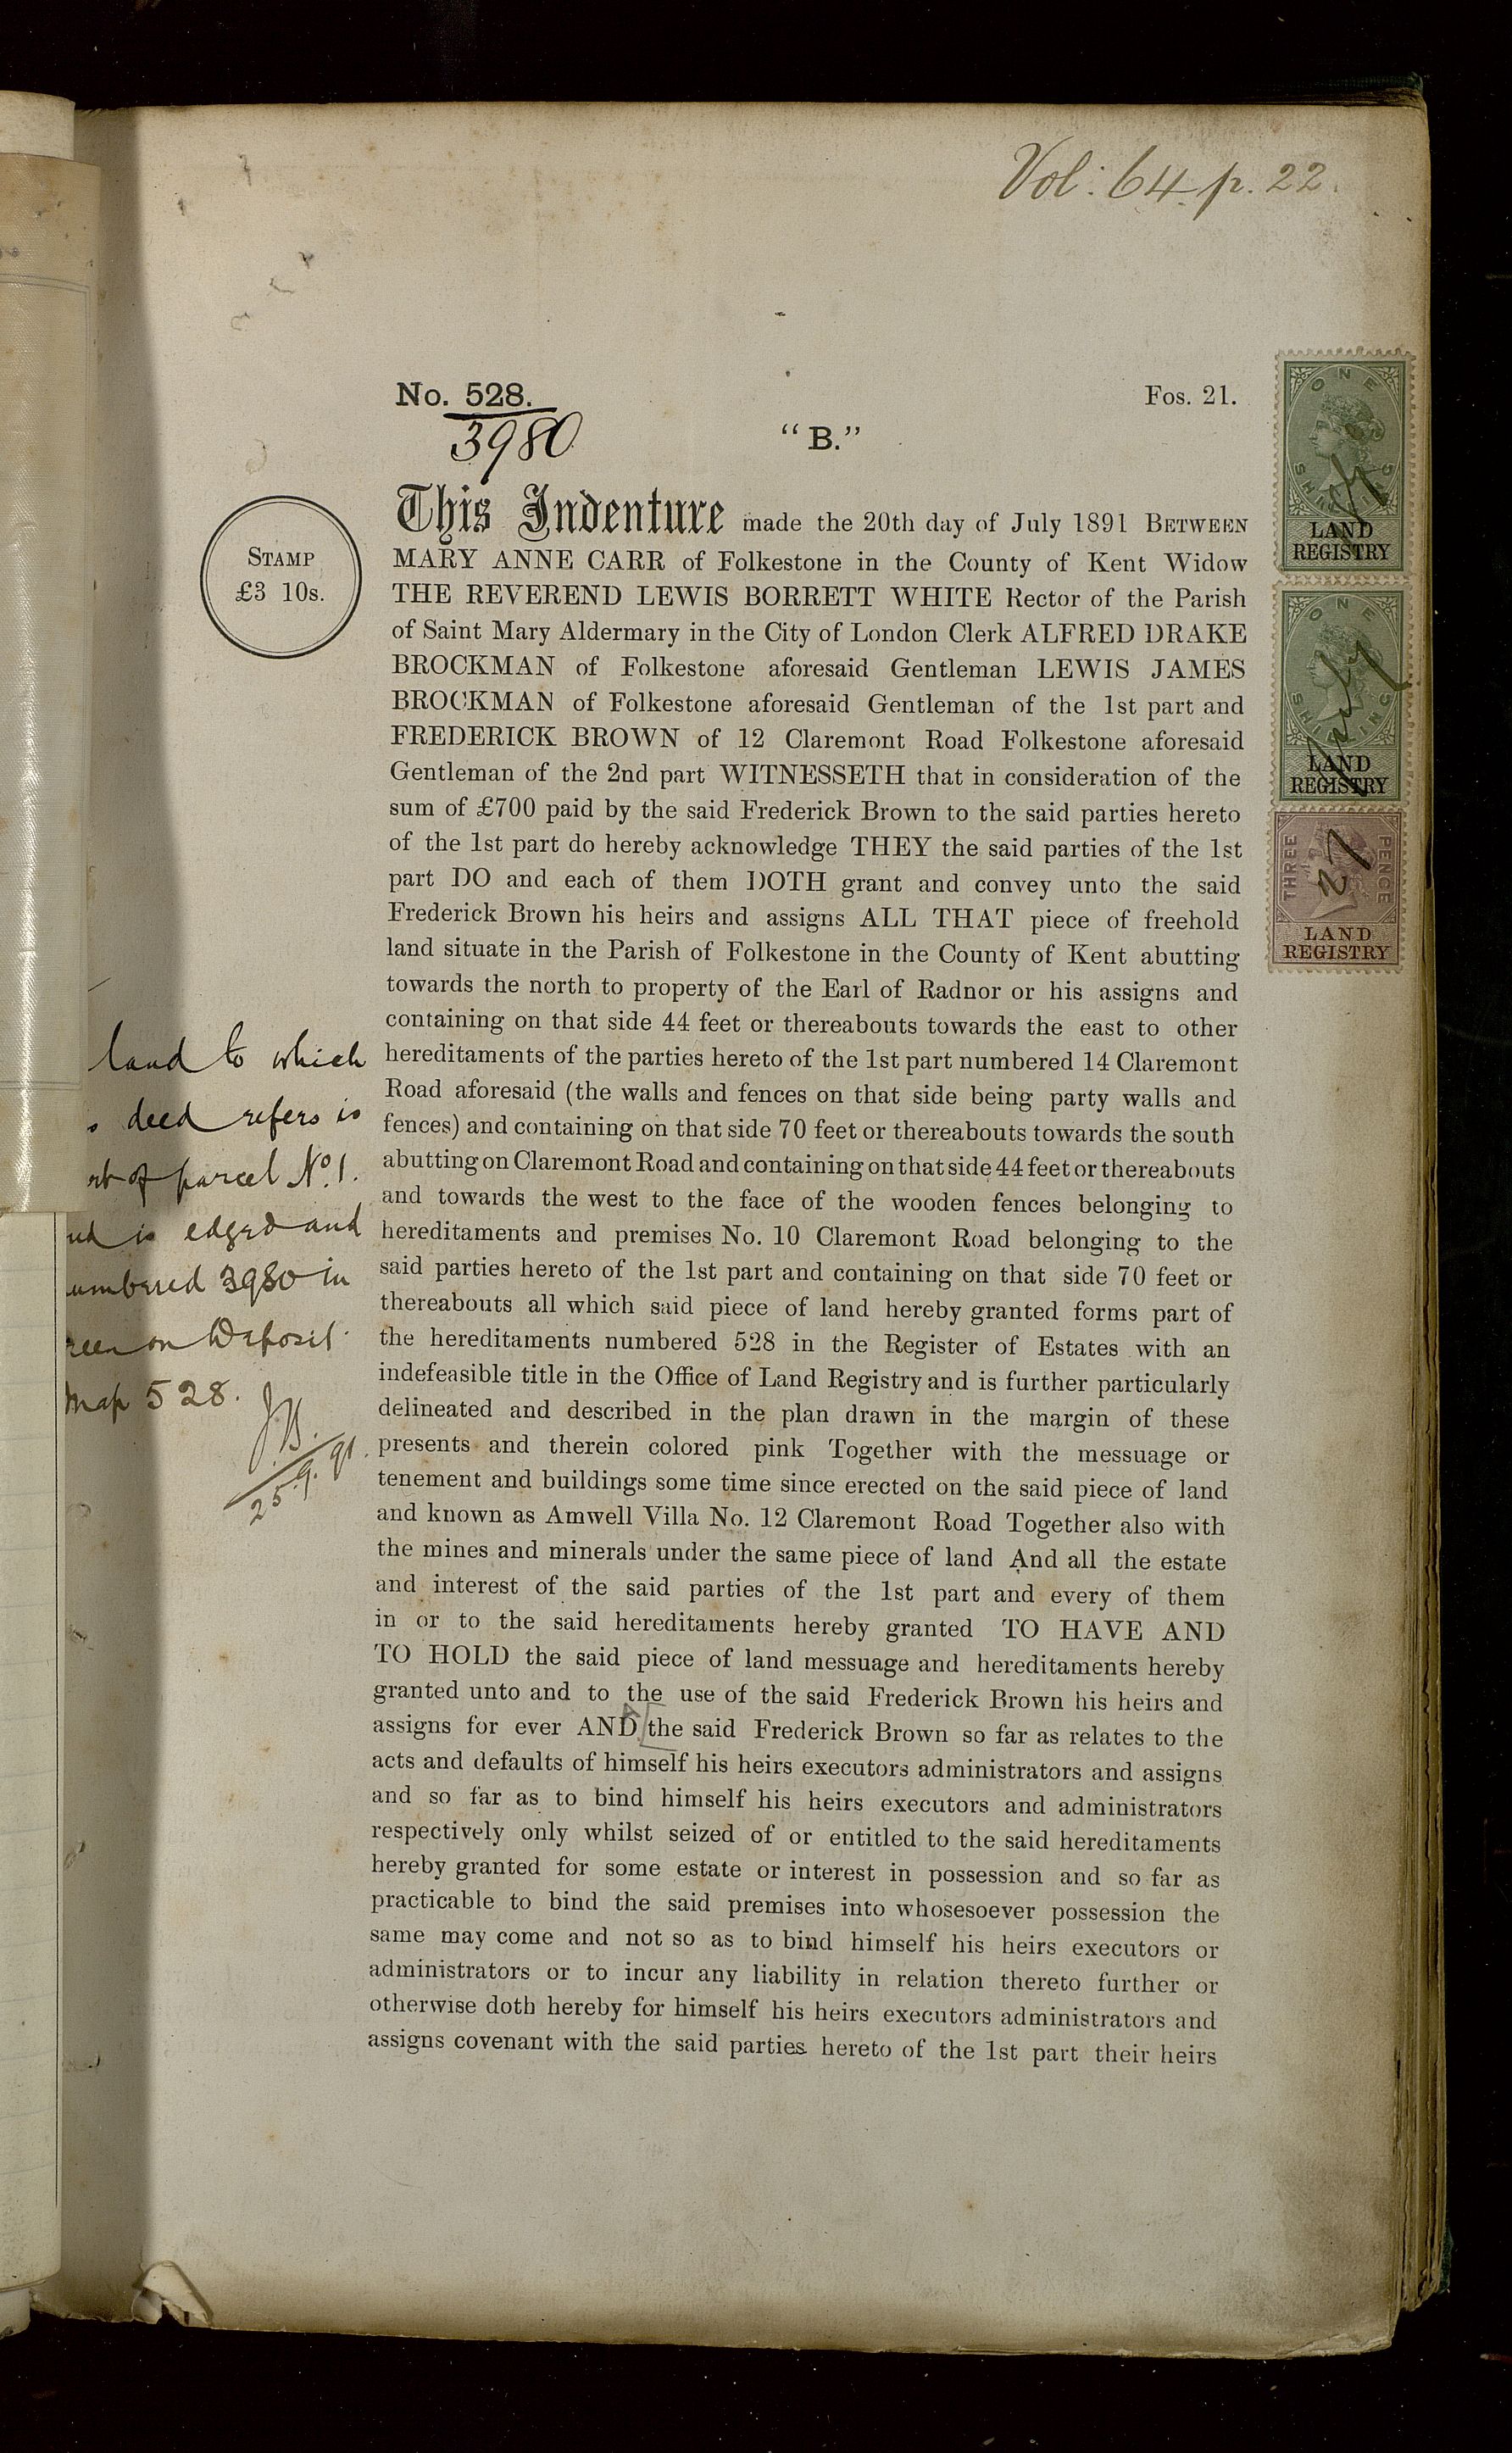 Vol: 64. p. 22.
No. 528.
3980
Fos. 21.
"B."
STAMP
£3 10s.
This Indenture made the 20th day of July 1891 BETWEEN
MARY ANNE CARR of Folkestone in the County of Kent Widow
THE REVEREND LEWIS BORRETT WHITE Rector of the Parish
of Saint Mary Aldermary in the City of London Clerk ALFRED DRAKE
BROCKMAN of Folkestone aforesaid Gentleman LEWIS JAMES
BROCKMAN of Folkestone aforesaid Gentleman of the 1st part and
FREDERICK BROWN of 12 Claremont Road Folkestone aforesaid
Gentleman of the 2nd part WITNESSETH that in consideration of the
sum of £700 paid by the said Frederick Brown to the said parties hereto
of the 1st part do hereby acknowledge THEY the said parties of the 1st
part DO and each of them DOTH grant and convey unto the said
Frederick Brown his heirs and assigns ALL THAT piece of freehold
land situate in the Parish of Folkestone in the County of Kent abutting
towards the north to property of the Earl of Radnor or his assigns and
containing on that side 44 feet or thereabouts towards the east to other
hereditaments of the parties hereto of the 1st part numbered 14 Claremont
Road aforesaid (the walls and fences on that side being party walls and
fences) and containing on that side 70 feet or thereabouts towards the south
abutting on Claremont Road and containing on that side 44 feet or thereabouts
and towards the west to the face of the wooden fences belonging to
hereditaments and premises No. 10 Claremont Road belonging to the
said parties hereto of the 1st part and containing on that side 70 feet or
thereabouts all which said piece of land hereby granted forms part of
the hereditaments numbered 528 in the Register of Estates with an
indefeasible title in the Office of Land Registry and is further particularly
delineated and described in the plan drawn in the margin of these
presents and therein colored pink Together with the messuage or
tenement and buildings some time since erected on the said piece of land
and known as Amwell Villa No. 12 Claremont Road Together also with
the mines and minerals under the same piece of land And all the estate
and interest of the said parties of the 1st part and every of them
in or to the said hereditaments hereby granted TO HAVE AND
TO HOLD the said piece of land messuage and hereditaments hereby
granted unto and to the use of the said Frederick Brown his heirs and
assigns for ever AND the said Frederick Brown so far as relates to the
acts and defaults of himself his heirs executors administrators and assigns
and so far as to bind himself his heirs executors and administrators
respectively only whilst seized of or entitled to the said hereditaments
hereby granted for some estate or interest in possession and so far as
practicable to bind the said premises into whosesoever possession the
same may come and not so as to bind himself his heirs executors or
administrators or to incur any liability in relation thereto further or
otherwise doth hereby for himself his heirs executors administrators and
assigns covenant with the said parties hereto of the 1st part their heirs
land to which
deed refers is
of parcel No. 1.
is edged and
numbered 3980 in
on Deposit
Map 528.
J.B.
25.9.91.
ONE SHILLING
LAND
REGISTRY
ONE SHILLING
LAND
REGISTRY
July
THREE PENCE
27
LAND
REGISTRY